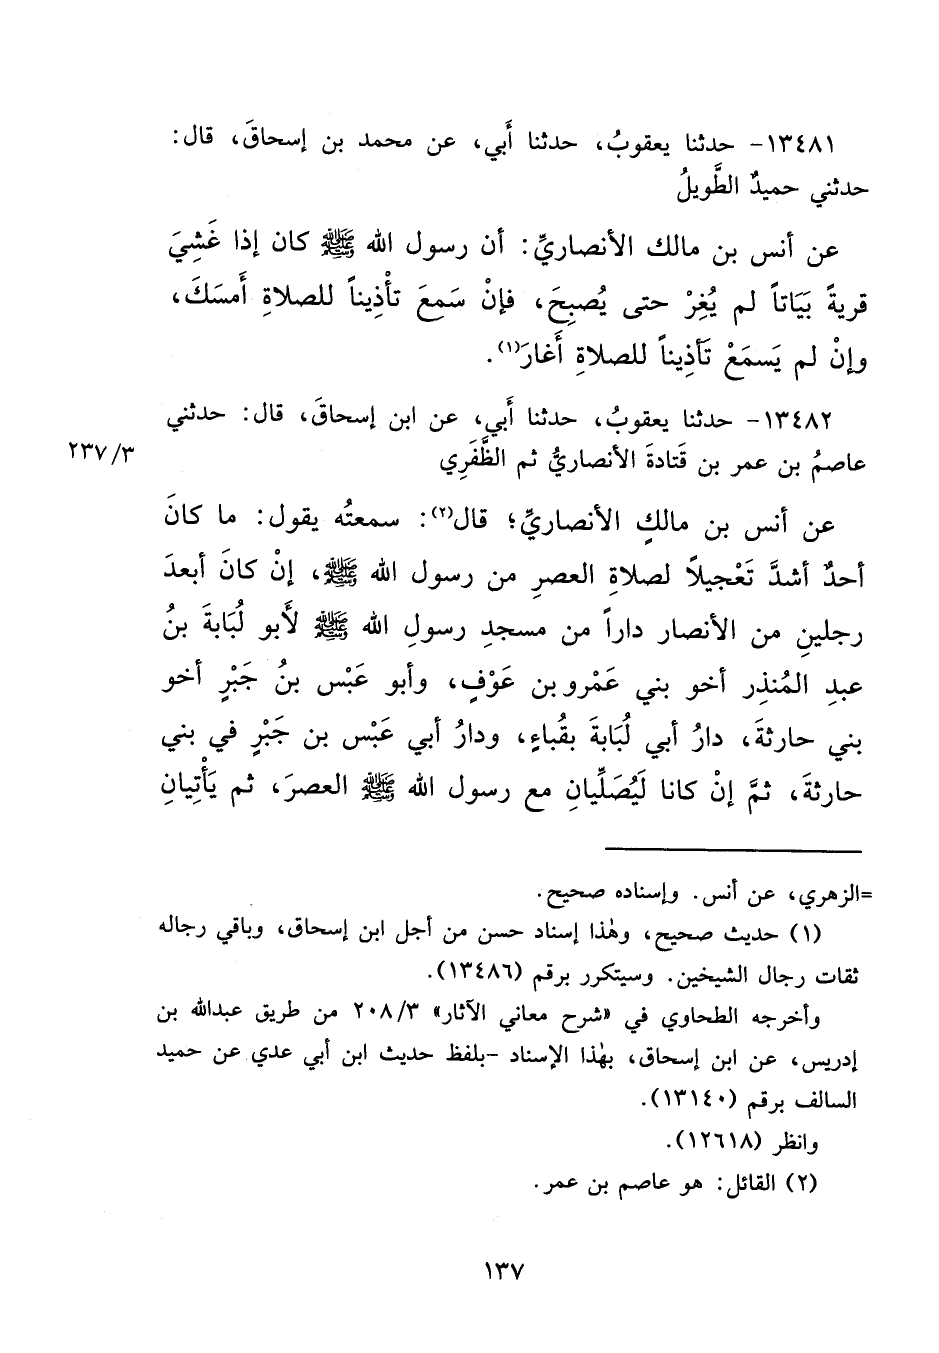 ١٣٤٨١- حدثنا يعقوبُ، حدثنا أَبي، عن محمد بن إسحاقَ، قال:
حدثني حميدٌ الطَّويلُ
عن أنس بن مالك الأنصاريِّ: أن رسول الله ﷺ كان إذا غَشِيَ
قريةً بَيَاتاً لم يُغِرْ حتى يُصبِحَ، فإنْ سَمِعَ تأْذِيناً للصلاةِ أَمسَكَ،
وإنْ لم يَسمَعْ تَأذِيناً للصلاةِ أَغارَ(١).
١٣٤٨٢- حدثنا يعقوبُ، حدثنا أَبي، عن ابن إسحاقَ، قال: حدثني
عاصمُ بن عمر بن قَتادةَ الأنصاريُّ ثم الظَّفَرِي
٢٣٧/٣
عن أنس بن مالكٍ الأنصاريِّ؛ قال(٢): سمعتُه يقول: ما كانَ
أحدٌ أشدَّ تَعْجيلاً لصلاةِ العصرِ من رسول الله ﷺ، إنْ كانَ أبعدَ
رجلينِ من الأنصار داراً من مسجدِ رسولِ الله ﷺ لأَبو لُبَابةَ بنُ
عبدِ المُنذِر أخو بني عَمْرو بن عَوْفٍ، وأبو عَبْس بنُ جَبْرٍ أخو
بني حارثةَ، دارُ أبي لُبَابةَ بقُباءٍ، ودارُ أبي عَبْس بن جَبْرٍ في بني
حارثةَ، ثمَّ إنْ كانا لَيُصَلِّيانِ مع رسول الله ﷺ العصرَ، ثم يَأْتِيانِ
=الزهري، عن أنس. وإسناده صحيح.
(١) حديث صحيح، وهٰذا إسناد حسن من أجل ابن إسحاق، وباقي رجاله
ثقات رجال الشيخين. وسيتكرر برقم (١٣٤٨٦).
وأخرجه الطحاوي في «شرح معاني الآثار» ٢٠٨/٣ من طريق عبدالله بن
إدريس، عن ابن إسحاق، بهٰذا الإسناد -بلفظ حديث ابن أبي عدي عن حميد
السالف برقم (١٣١٤٠).
وانظر (١٢٦١٨).
(٢) القائل: هو عاصم بن عمر.
١٣٧